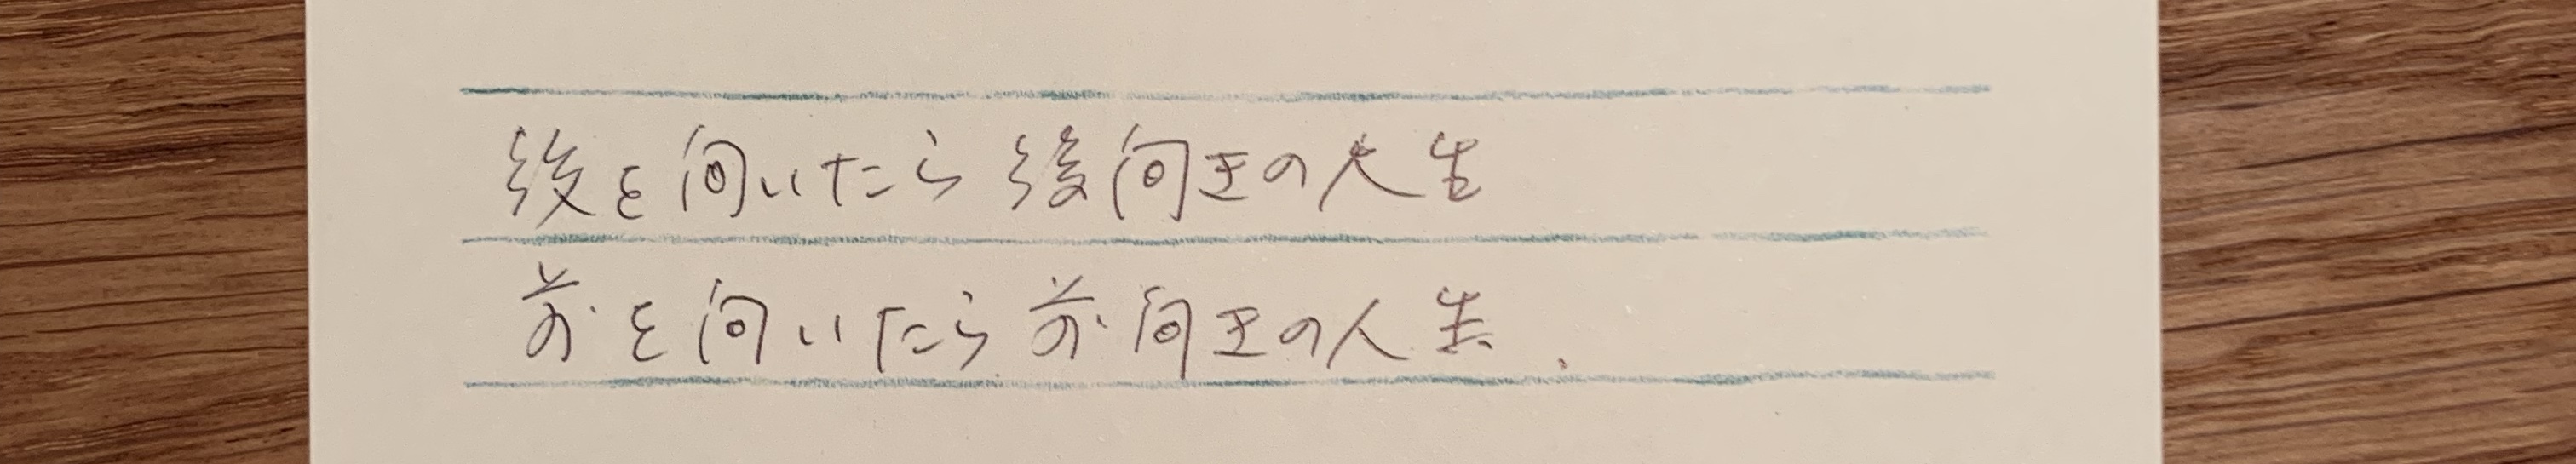 後を向いたら後向きの人生
前を向いたら前向きの人生.